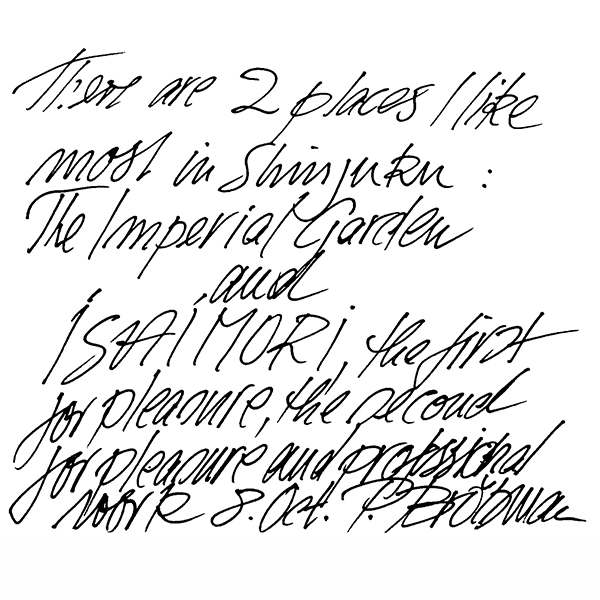 There are 2 places I like
most in Shinjuku :
The Imperial Garden
and
ISAIMORI, the first
for pleasure, the second
for pleasure and professional
work 8. Oct. P. Brötzman